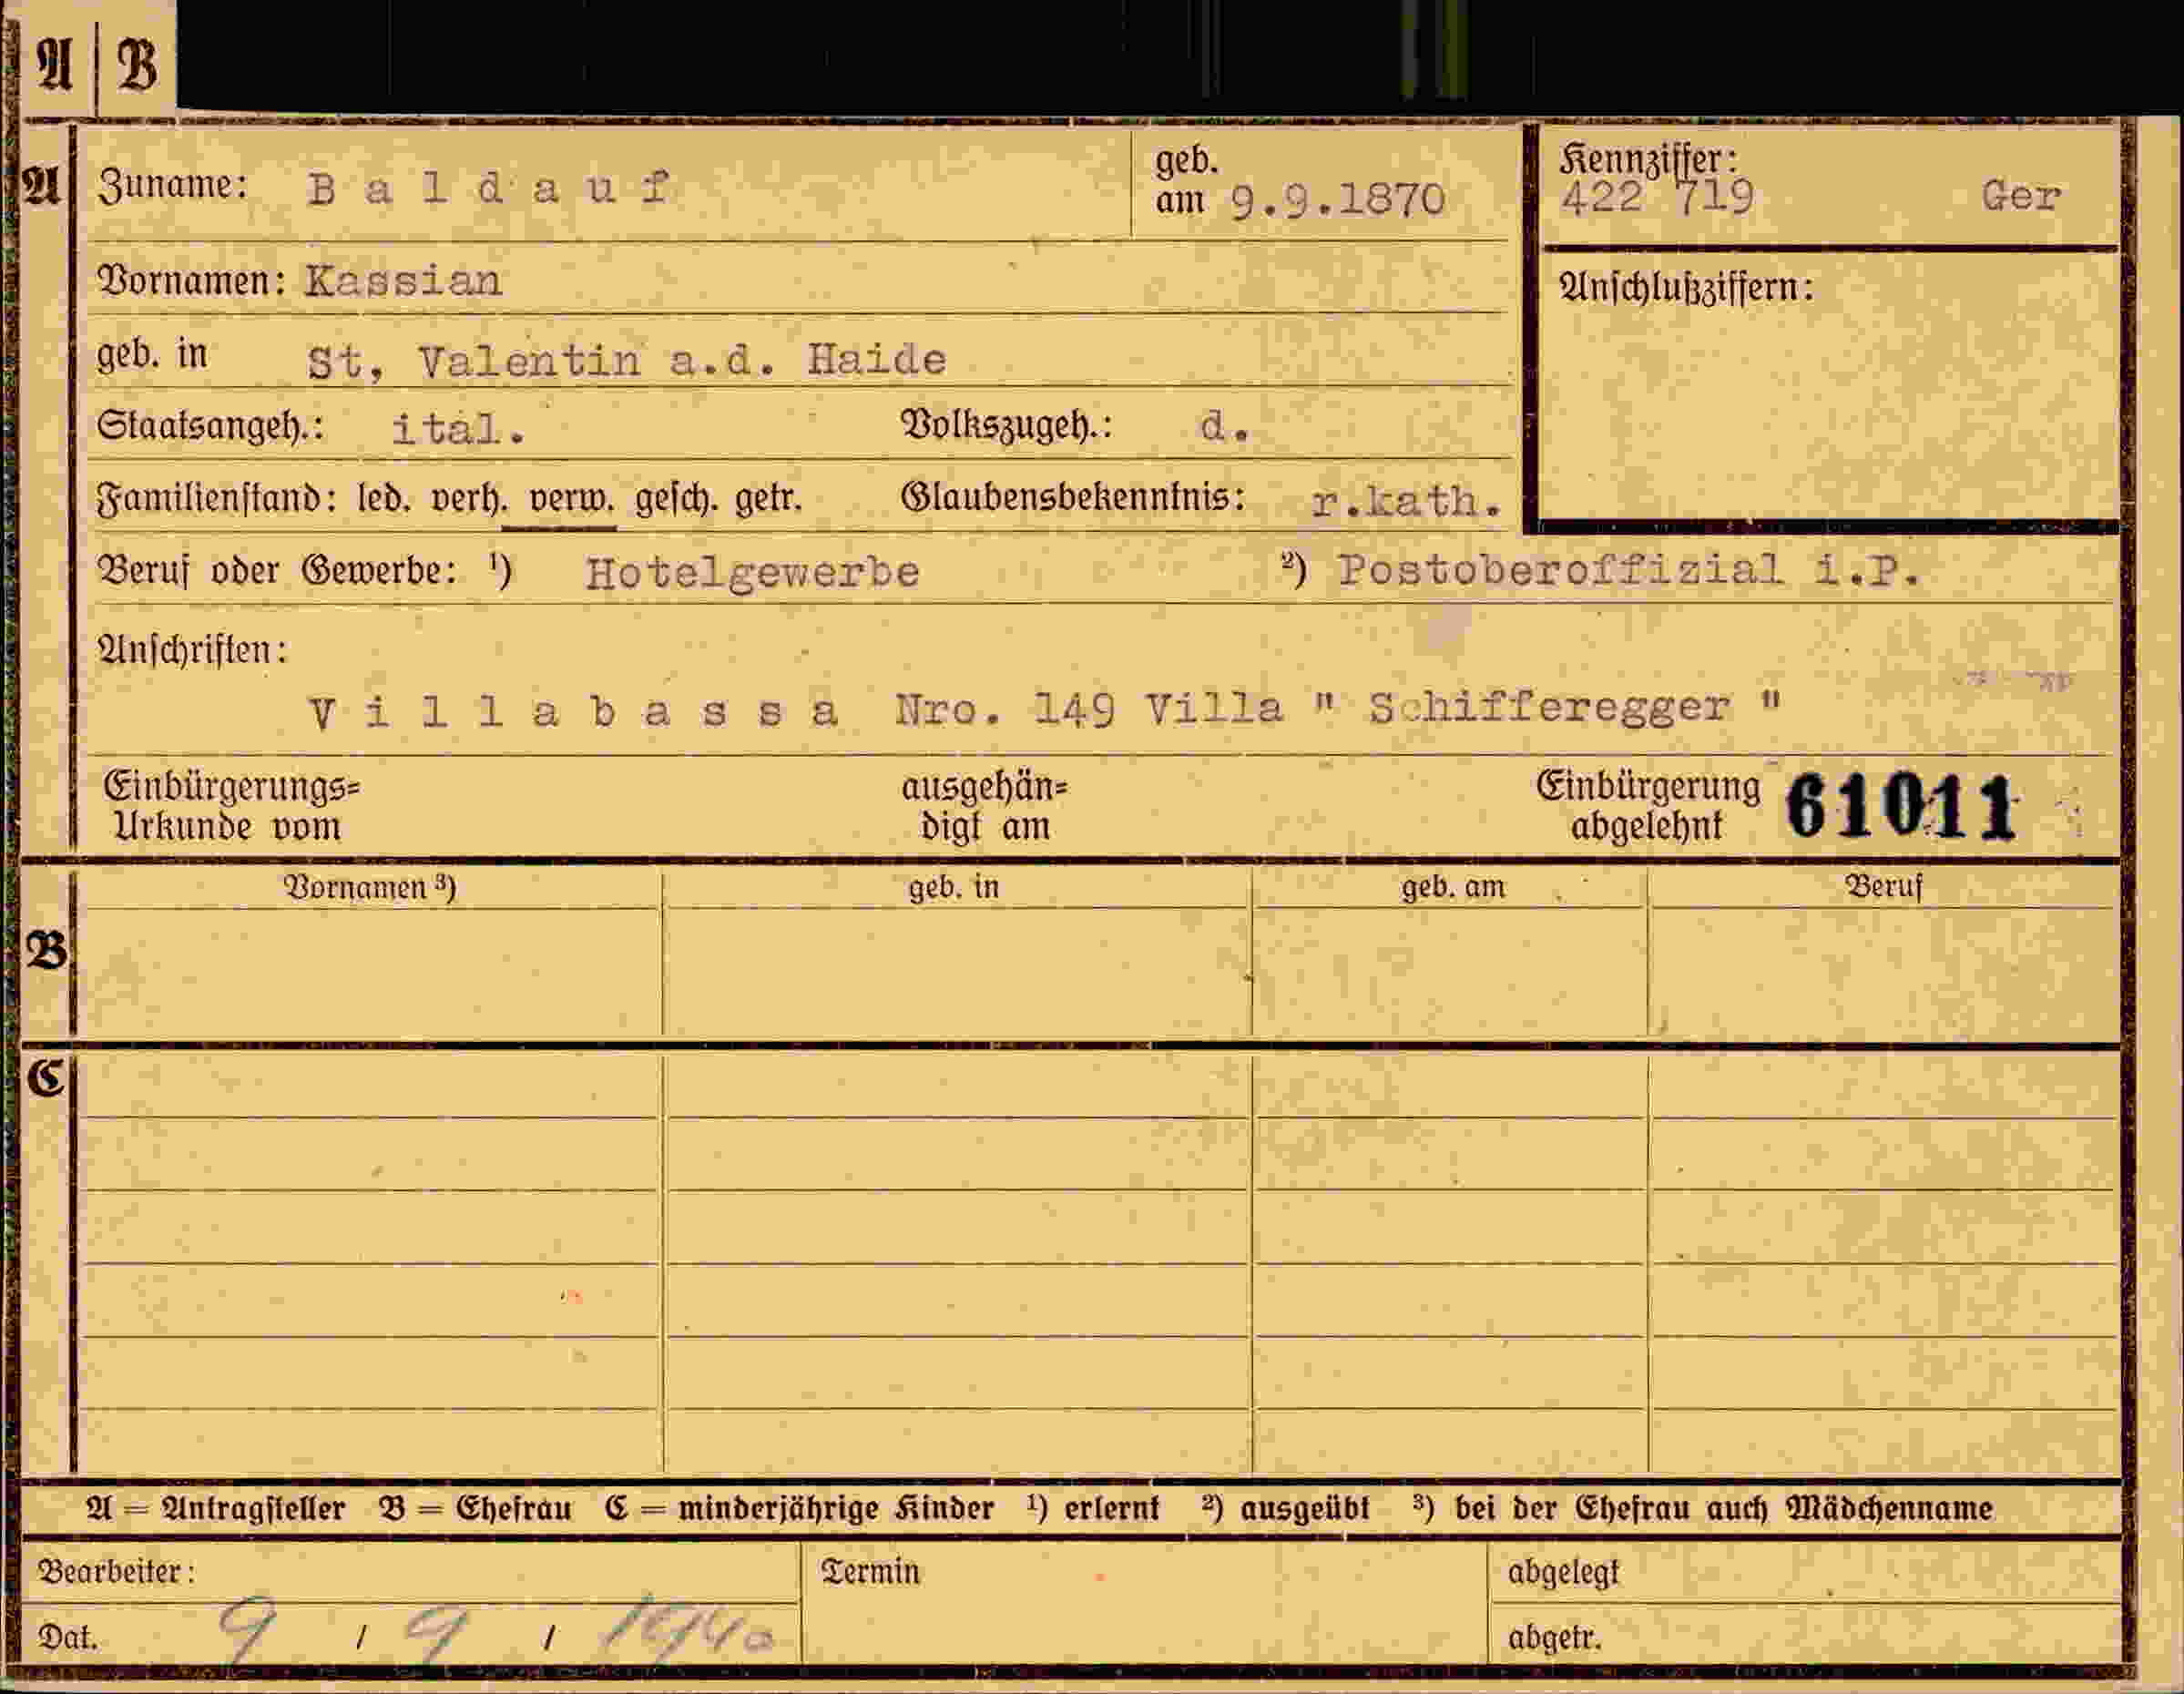 A | B
A
Zuname: B a l d a u f
geb. am 9.9.1870
Kennziffer:
422 719 Ger
Vornamen: Kassian
Anschlußziffern:
geb. in St, Valentin a.d. Haide
Staatsangeh.: ital. Volkszugeh.: d.
Familienstand: led. verh. verw. gesch. getr. Glaubensbekenntnis: r.kath.
Beruf oder Gewerbe: ¹) Hotelgewerbe ²) Postoberoffizial i.P.
Anschriften:
V i l l a b a s s a Nro. 149 Villa " Schifferegger "
Einbürgerungs= ausgehän= Einbürgerung 61011
Urkunde vom digt am abgelehnt
Vornamen ³) geb. in geb. am Beruf
B
C
A = Antragsteller B = Ehefrau C = minderjährige Kinder ¹) erlernt ²) ausgeübt ³) bei der Ehefrau auch Mädchenname
Bearbeiter: Termin abgelegt
Dat. 9 / 9 / 1940 abgetr.